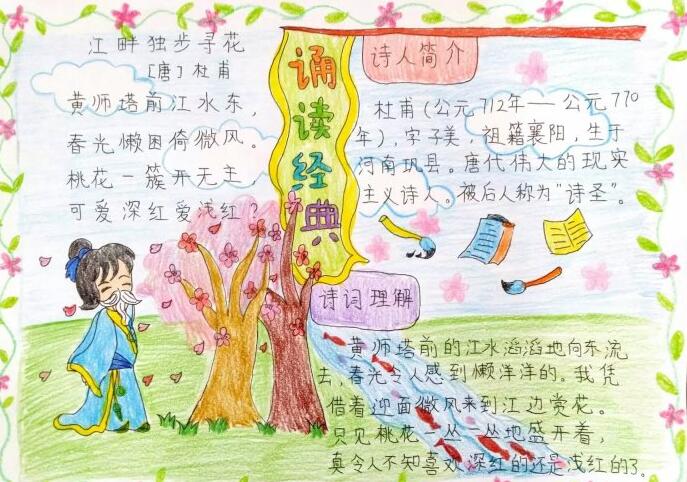 江畔独步寻花
［唐］杜甫
黄师塔前江水东，
春光懒困倚微风。
桃花一簇开无主，
可爱深红爱浅红？
诵读经典
诗人简介
杜甫（公元712年——公元770
年），字子美，祖籍襄阳，生于
河南巩县。唐代伟大的现实
主义诗人。被后人称为“诗圣”。
诗词理解
黄师塔前的江水滔滔地向东流
去，春光令人感到懒洋洋的。我凭
借着迎面微风来到江边赏花。
只见桃花一丛一丛地盛开着，
真令人不知喜欢深红的还是浅红的了。